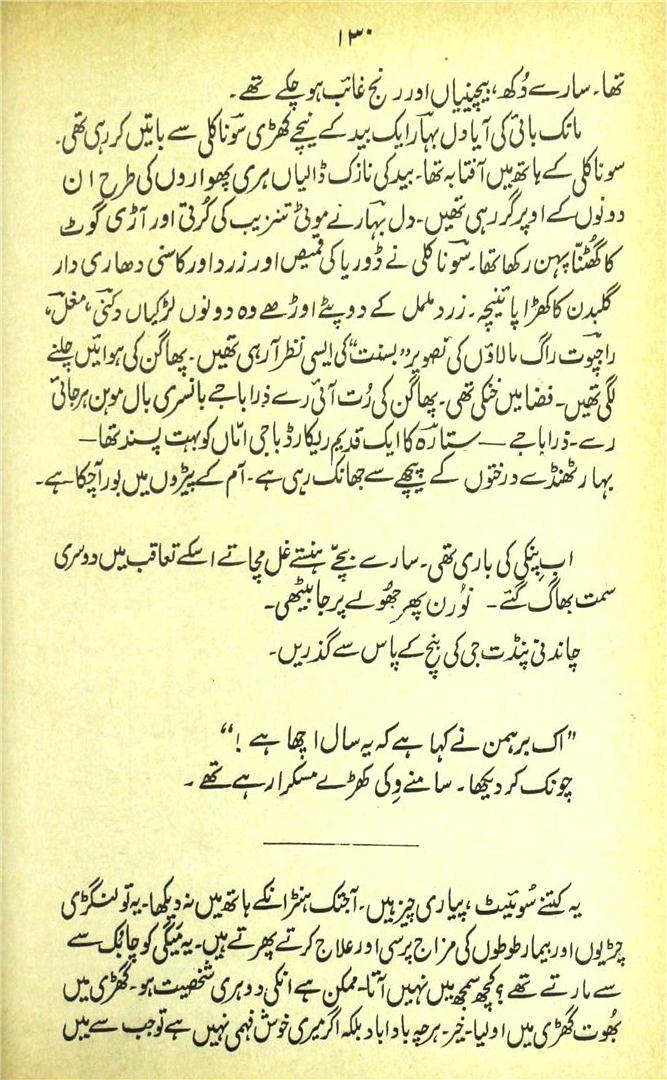 ۱۳۰
تھا۔ سارے دُکھ، بیچینیاں اور رنج غائب ہو چکے تھے۔
مانک بائی کی آیا دل بہار ایک بید کے نیچے کھڑی سونا کلی سے باتیں کر رہی تھی۔
سونا کلی کے ہاتھ میں آفتابہ تھا۔ بید کی نازک ڈالیاں ہری پھواروں کی طرح ان
دونوں کے اوپر گر رہی تھیں۔ دل بہار نے موٹی تنزیب کی کُرتی اور آڑی گوٹ
کا گھٹنّا پہن رکھا تھا۔ سونا کلی نے ڈوریا کی قمیض اور زرد اور کاسنی دھاری دار
گلبدن کا کھڑا پائنیچہ۔ زرد ململ کے دوپٹے اوڑھے وہ دونوں لڑکیاں دکنی، مغل،
راجپوت راگ مالاؤں کی تصویر ”بسنت“ کی ایسی نظر آرہی تھیں۔ پھاگن کی ہوائیں چلنے
لگی تھیں۔ فضا میں خنکی تھی۔ پھاگن کی رُت آئی رے ذرا باجے بانسری بال موہن ہرجائی
رے۔ ذرا باجے — ستارہ کا ایک قدیم ریکارڈ باجی امّاں کو بہت پسند تھا —
بہار ٹھنڈے درختوں کے پیچھے سے جھانک رہی ہے۔ آم کے پیڑوں میں بور آچکا ہے۔
اب پنکی کی باری تھی۔ سارے بچّے ہنستے غل مچاتے اسکے تعاقب میں دوسری
سمت بھاگ گئے۔ نُورن پھر جھُولے پر جا بیٹھی۔
چاندنی پنڈت جی کی بنچ کے پاس سے گذریں۔
”اک برہمن نے کہا ہے کہ یہ سال اچھا ہے!“
چونک کر دیکھا۔ سامنے وِکی کھڑے مسکرا رہے تھے۔
یہ کتنے سُوئیٹ، پیاری چیز ہیں۔ آجتک ہنٹر انکے ہاتھ میں نہ دیکھا۔ یہ تو لنگڑی
چڑیوں اور بیمار طوطوں کی مزاج پرسی اور علاج کرتے پھرتے ہیں۔ یہ میگی کو چابُک سے
سے مارتے تھے؟ کچھ سمجھ میں نہیں آتا۔ ممکن ہے انکی دوہری شخصیت ہو۔ گھڑی میں
بھُوت گھڑی میں اولیا۔ خیر۔ ہرچہ بادا باد بلکہ اگر میری خوش فہمی نہیں ہے تو جب سے میں